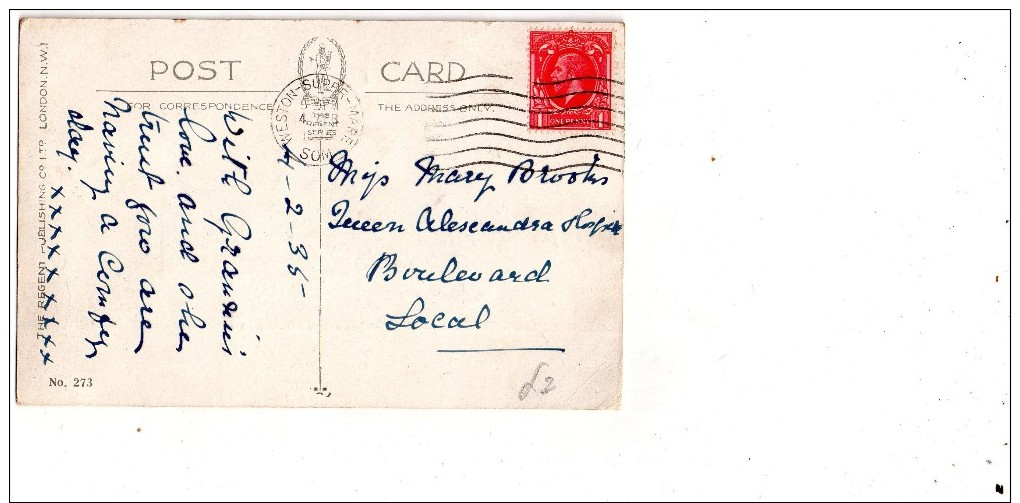 POST CARD
FOR CORRESPONDENCE
THE ADDRESS ONLY.
WESTON-SUPER-MARE
SOM
THE
REGENT
SERIES
ONE PENNY
1 1
4-2-35
With Grannie's
love. and she
trust you are
having a Comfy
day.
xxxxxxxxx
Miss Mary Brooks
Queen Alexandra
Boulevard
Local
THE REGENT PUBLISHING CO LTD LONDON. N.W.1
No. 273
£2